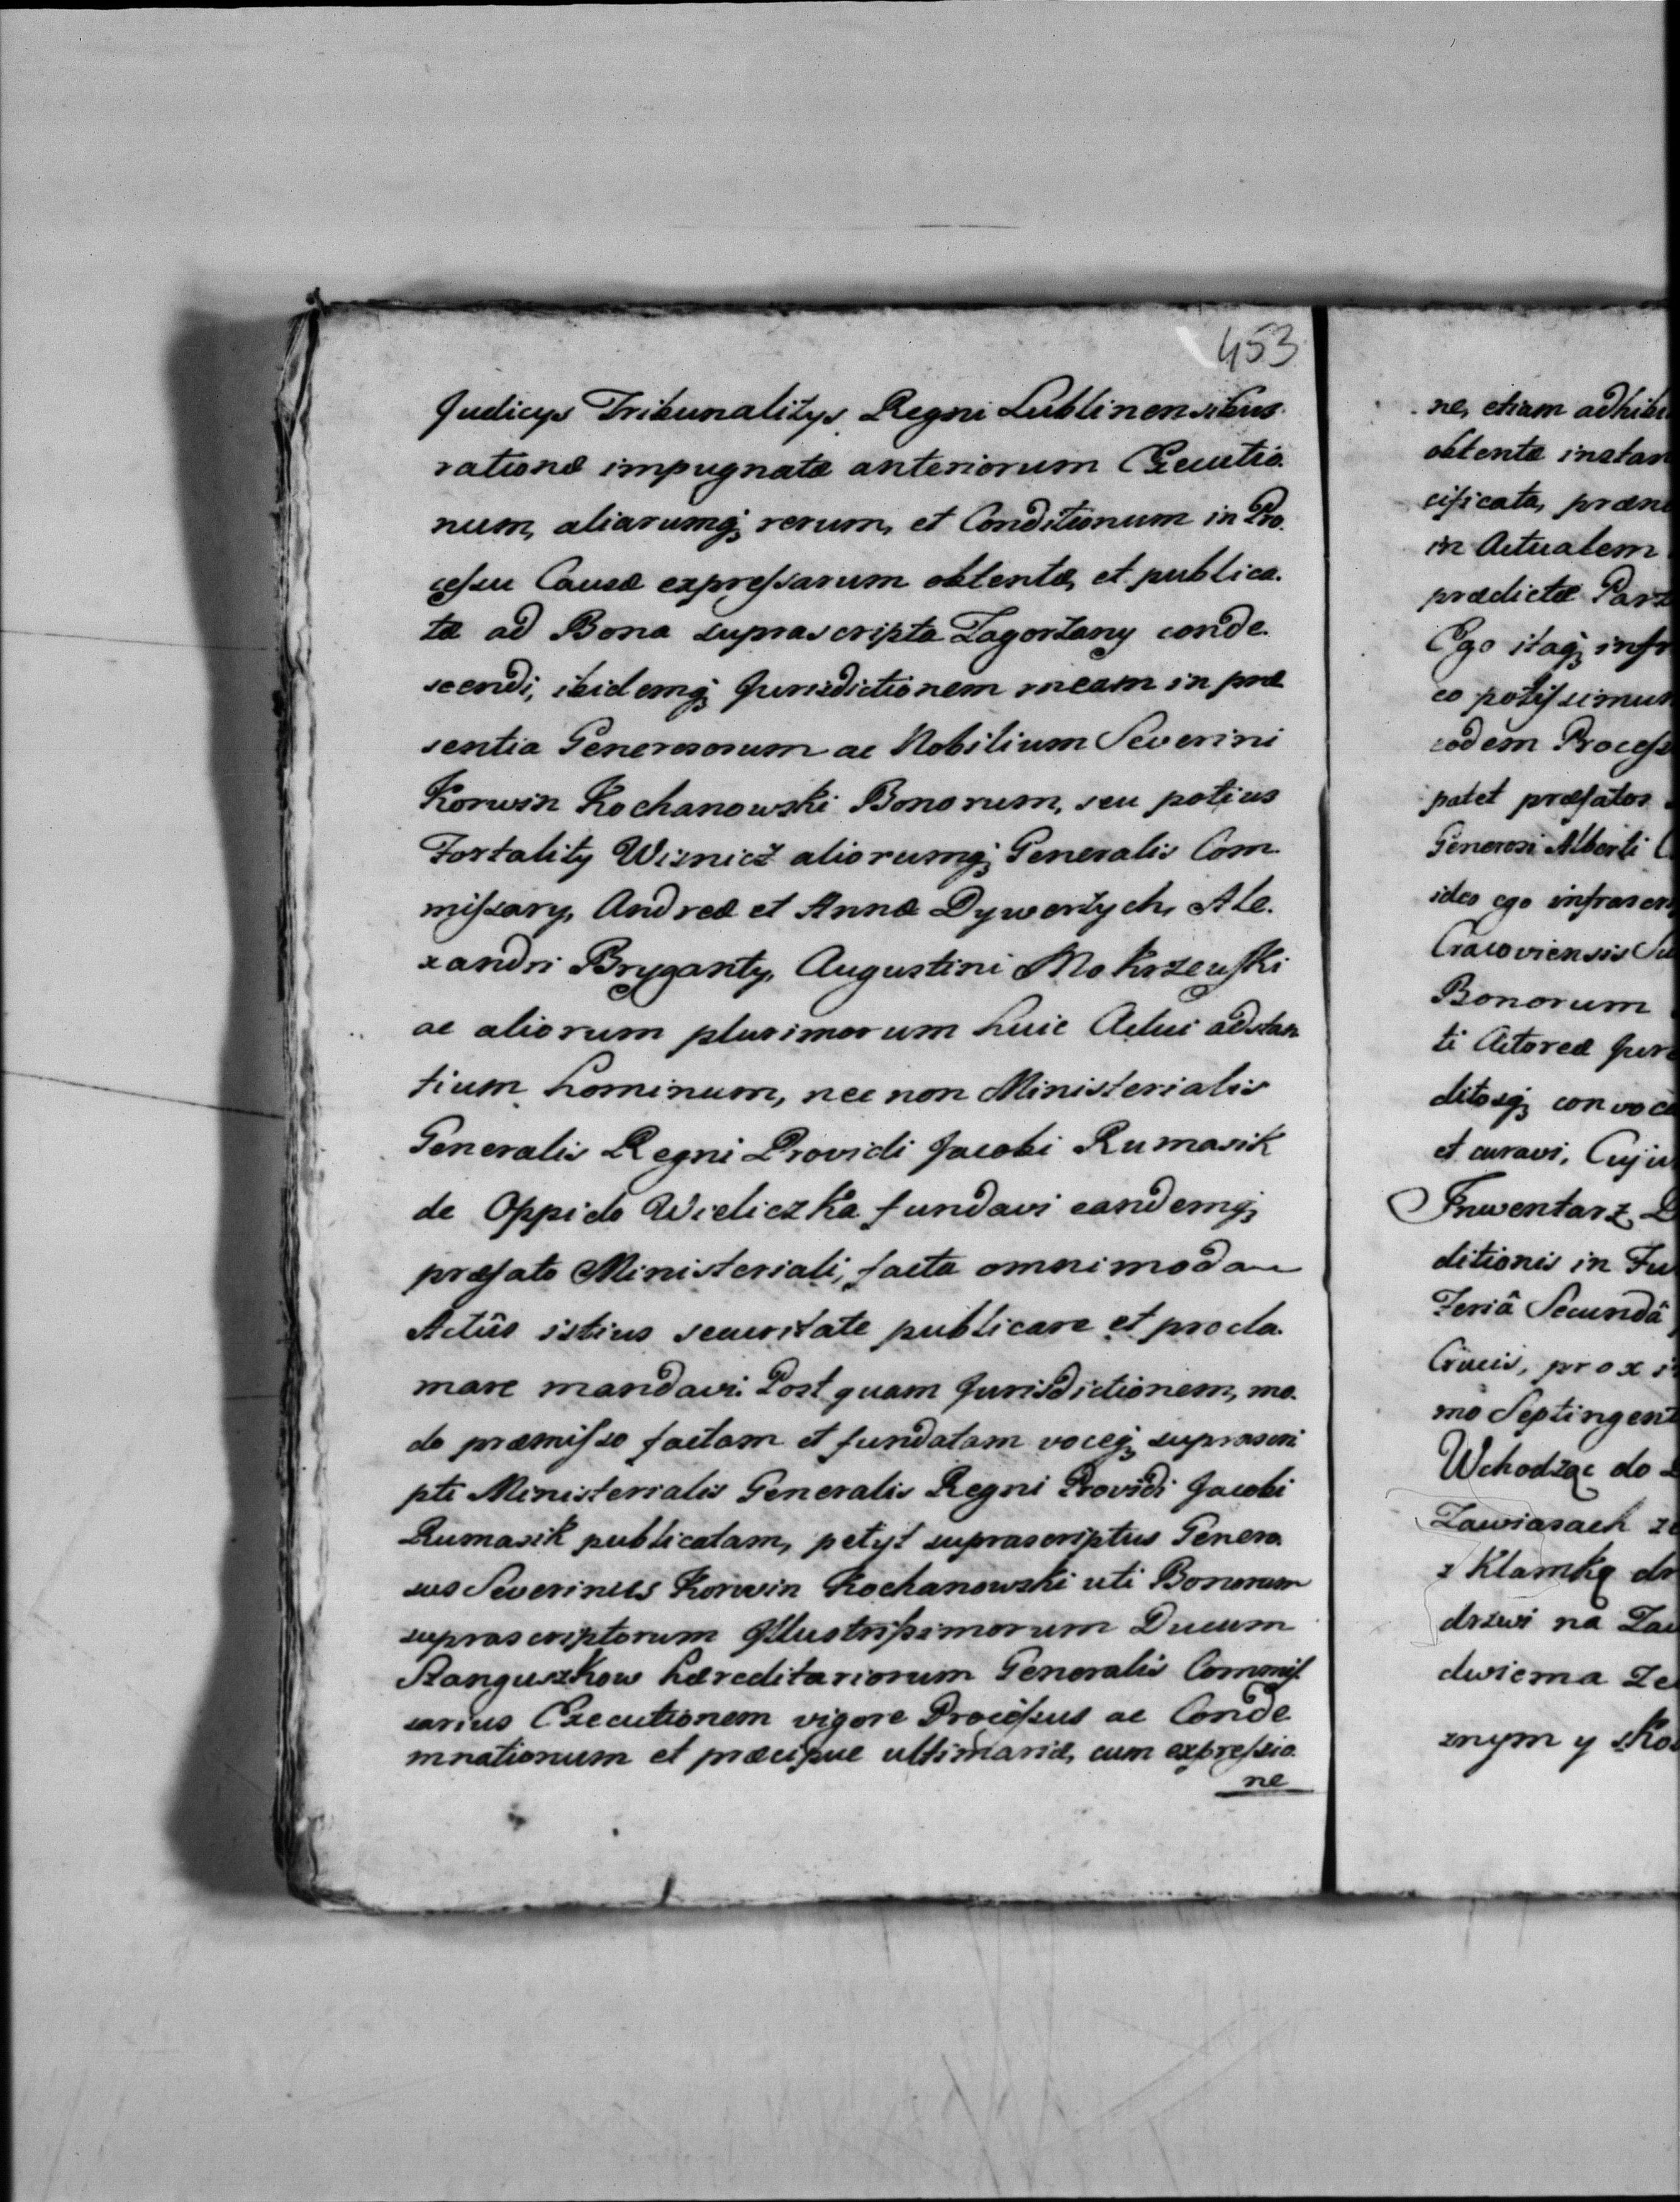 453
Judicys Tribunalitys Regni Lublinensibus
rationæ impugnatæ anteriorum Executio
num, aliarumq; rerum, et Conditionum in Pro.
cessu Causæ expressarum obtentæ, et publica.
tæ ad Bona suprascripta Zagorzany conde.
scendi, ibidemq; Jurisdictionem meam in præ
sentia Generosorum ac Nobilium Severini
Korwin Kochanowski Bonorum, seu potius
Fortality Wisnicz aliorumq; Generalis Com
missary, Andreæ et Annæ Dywerzych, Ale.
xandri Bryganty, Augustini Mokrzewski
ac aliorum plurimorum huic Actui adstan
tium hominum, nec non Ministerialis
Generalis Regni Providi Jacobi Rumasik
de Oppido Wieliczka fundavi eandemq;
præfato Ministeriali, facta omnimoda
Actûs istius securitate publicare et procla.
mare mandavi. Post quam Jurisdictionem, mo.
do præmisso factam et fundatam voceq; suprascri
pti Ministerialis Generalis Regni Providi Jacobi
Rumasik publicatam, petyt suprascriptus Genero.
sus Severinus Korwin Kochanowski uti Bonorum
suprascriptorum Illustrissimorum Ducum
Sanguszkow hæreditariorum Generalis Commis
sarius Executionem vigore Processus ac Conde
mnationum et præcipue ultimariæ, cum expressio.
ne
ne, etiam adhibi
obtentæ instan
cificata, præno
in Actualem
prædictæ Part
Ego itaq; infr
eo potissimum
eodem Process
patet præfatos
Generosi Alberti
ideo ego infrascr
Cracoviensis Su
Bonorum
ti Actoreæ Jur
ditosq; convoca
et curavi, Cuju
Inwentarz D
ditionis in Fu
Feriâ Secundâ
Crucis, proxi
mo Septingent
Wchodząc do
Zawiasach ze
z Klamką dr
drzwi na Zaw
dwiema Ze
znym y sko